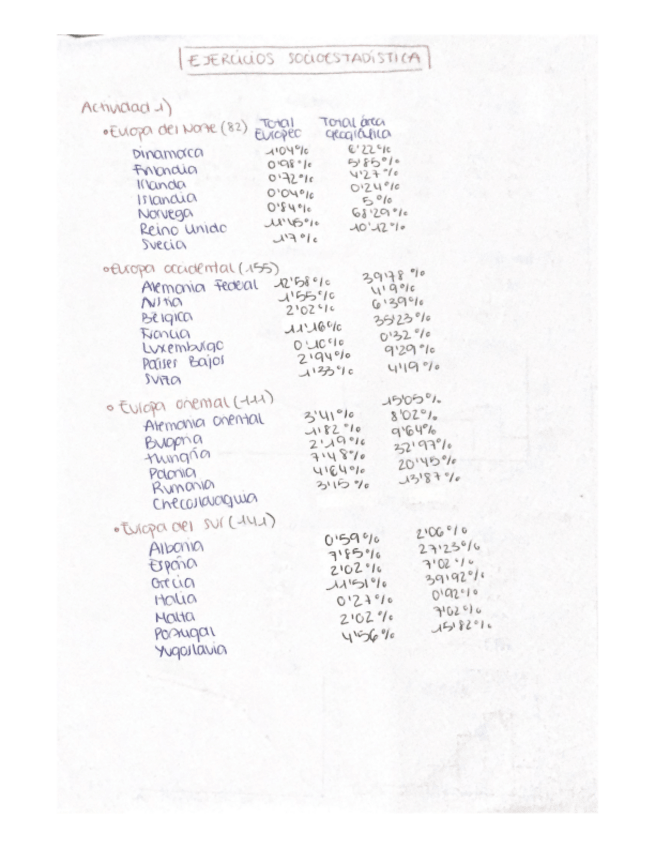 EJERCICIOS SOCIOESTADÍSTICA
Actividad 1)
• Europa del Norte (82) Total Europeo Total área geográfica
Dinamarca 1'04% 6'22%
Finlandia 0'98% 5'85%
Irlanda 0'72% 4'27%
Islandia 0'04% 0'24%
Noruega 0'84% 5%
Reino Unido 11'45% 68'29%
Suecia 1'7% 10'12%
• Europa occidental (155)
Alemania Federal 12'58% 39'78%
Austria 1'55% 4'9%
Bélgica 2'02% 6'39%
Francia 11'16% 35'23%
Luxemburgo 0'10% 0'32%
Países Bajos 2'94% 9'29%
Suiza 1'33% 4'19%
• Europa oriental (111)
Alemania oriental 3'41% 15'05%
Bugaria 1'82% 8'02%
Hungría 2'19% 9'64%
Polonia 7'48% 32'97%
Rumania 4'64% 20'45%
Checoslovaquia 3'15% 13'87%
• Europa del sur (141)
Albania 0'59% 2'06%
España 7'85% 27'23%
Grecia 2'02% 7'02%
Italia 11'51% 39'92%
Malta 0'27% 0'92%
Portugal 2'02% 7'02%
Yugoslavia 4'56% 15'82%